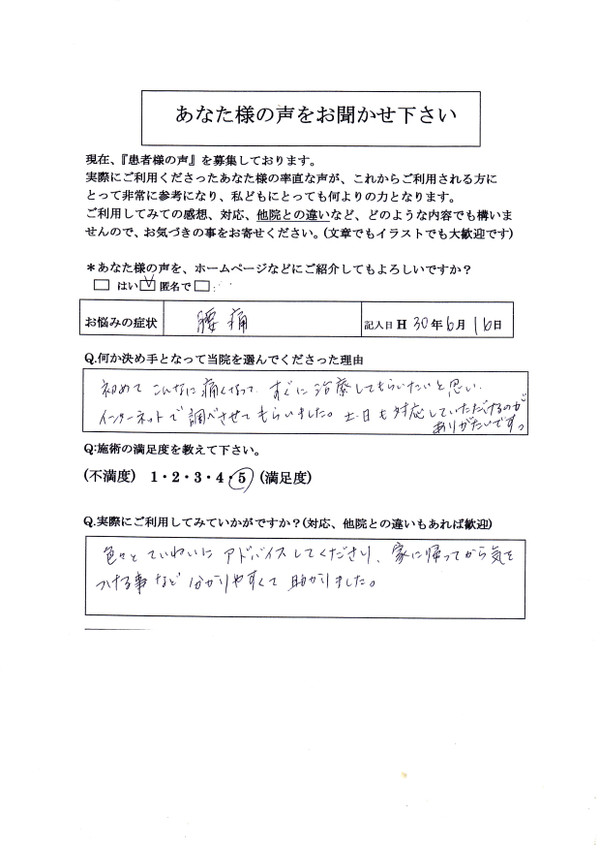 あなた様の声をお聞かせ下さい
現在、『患者様の声』を募集しております。
実際にご利用くださったあなた様の率直な声が、これからご利用される方に
とって非常に参考になり、私どもにとっても何よりの力となります。
ご利用してみての感想、対応、他院との違いなど、どのような内容でも構いま
せんので、お気づきの事をお寄せください。(文章でもイラストでも大歓迎です)
＊あなた様の声を、ホームページなどにご紹介してもよろしいですか？
□ はい ☑ 匿名で □
お悩みの症状 腰痛 記入日 H 30年6月16日
Q.何か決め手となって当院を選んでくださった理由
初めてこんなに痛くなって、すぐに治療してもらいたいと思い、
インターネットで調べさせてもらいました。土・日も対応していただけるのが
ありがたいですっ
Q:施術の満足度を教えて下さい。
(不満度) 1・2・3・4・5 (満足度)
Q.実際にご利用してみていかがですか？(対応、他院との違いもあれば歓迎)
色々とていねいにアドバイスしてくださり、家に帰ってから気を
つける事など分かりやすくて助かりました。